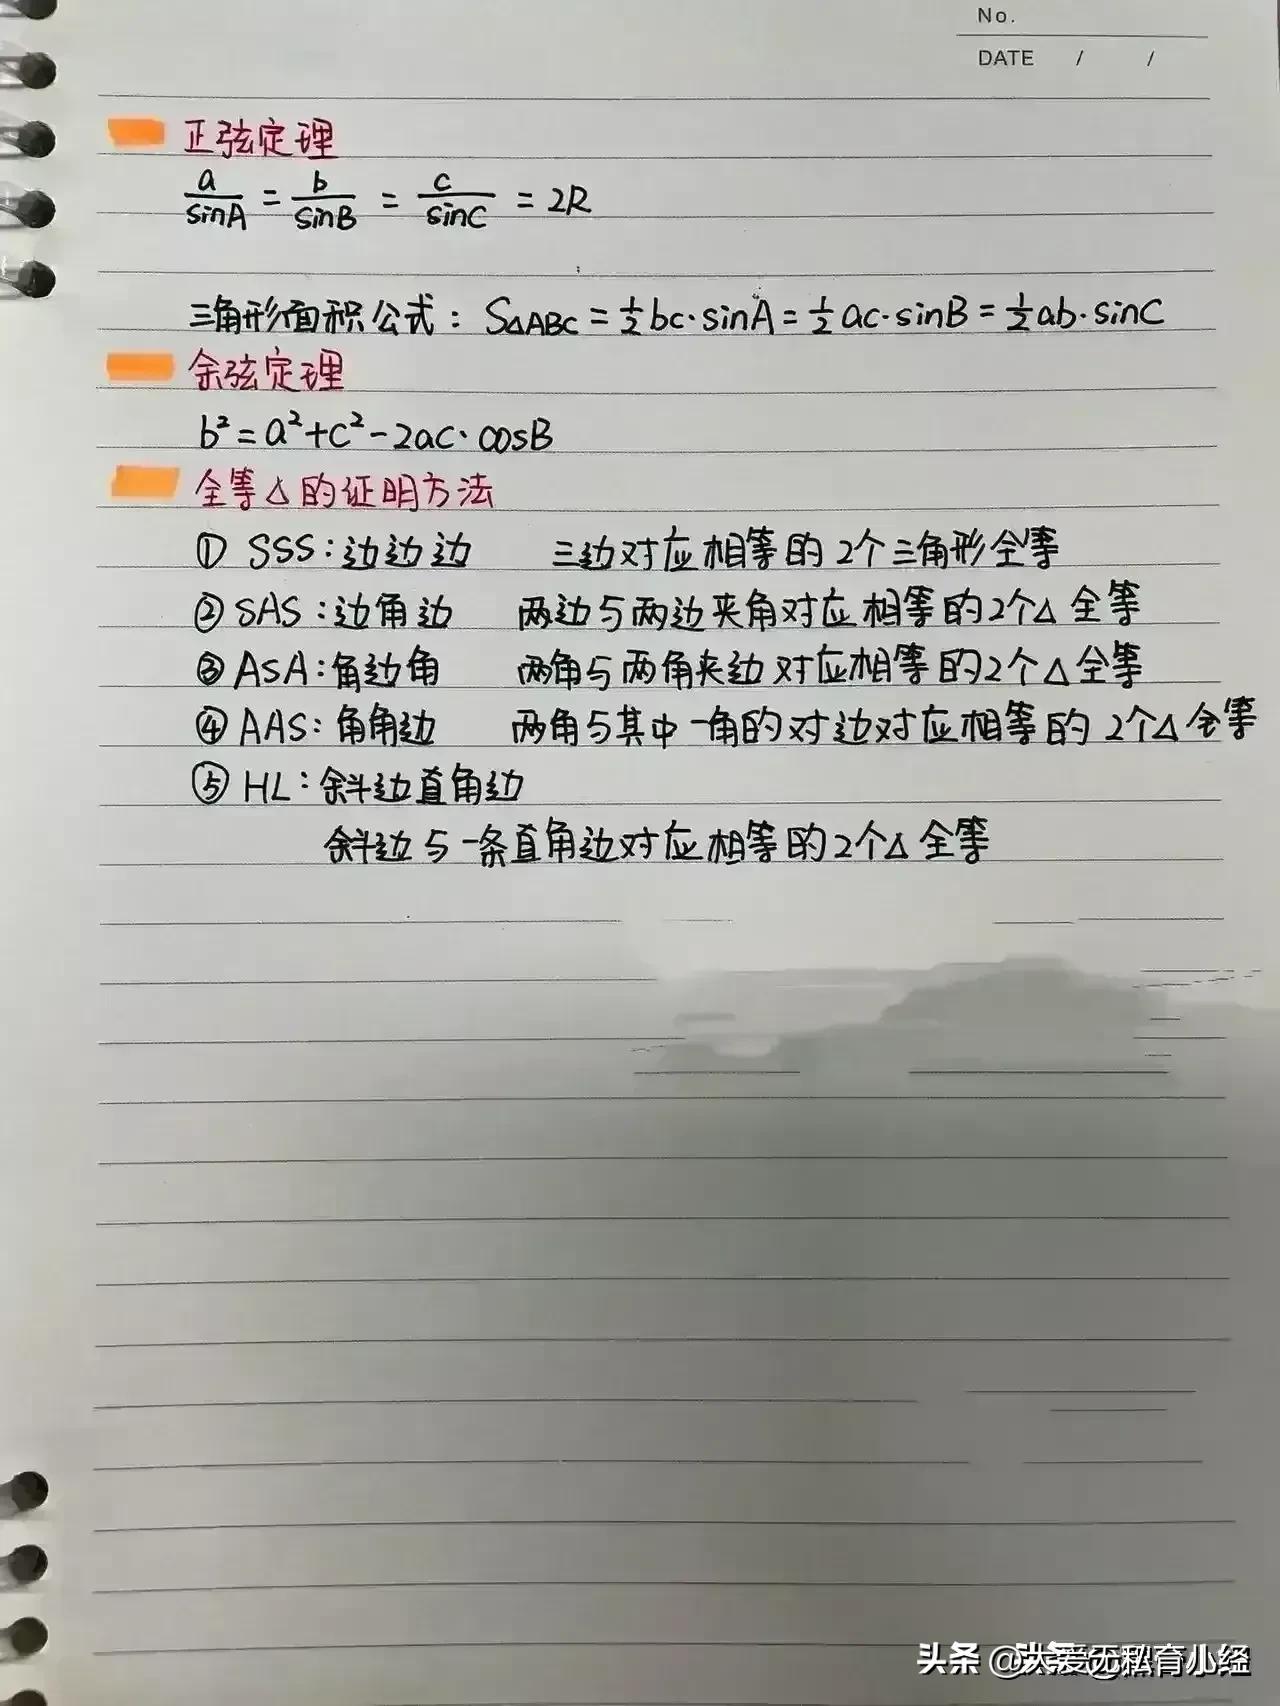 No.
DATE / /
正弦定理
a/sinA = b/sinB = c/sinC = 2R
三角形面积公式：S△ABC = 1/2 bc·sinA = 1/2 ac·sinB = 1/2 ab·sinC
余弦定理
b² = a² + c² - 2ac·cosB
全等△的证明方法
① SSS：边边边 三边对应相等的2个三角形全等
② SAS：边角边 两边与两边夹角对应相等的2个△全等
③ ASA：角边角 两角与两角夹边对应相等的2个△全等
④ AAS：角角边 两角与其中一角的对边对应相等的2个△全等
⑤ HL：斜边直角边
斜边与一条直角边对应相等的2个△全等
头条 @大爱无私育小经